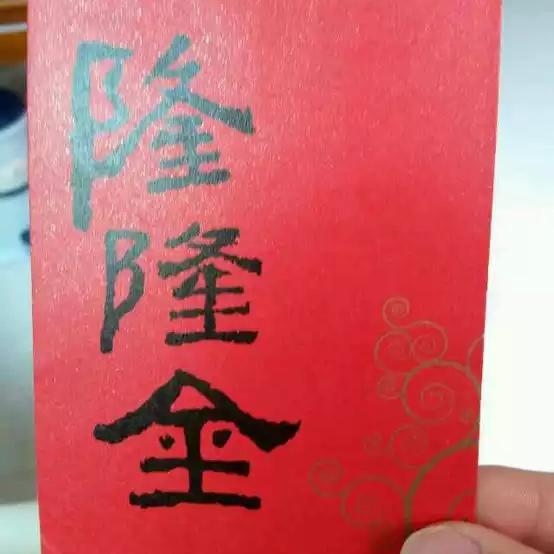 隆隆金